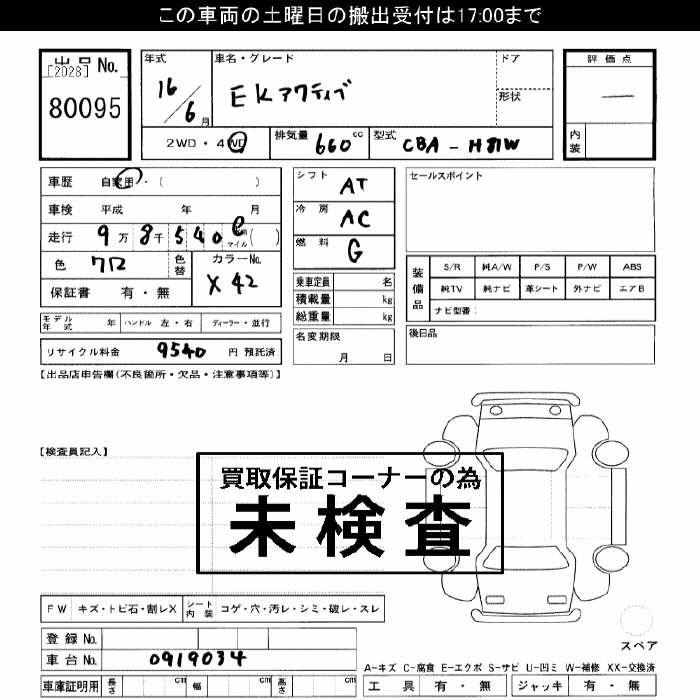 この車両の土曜日の搬出受付は17:00まで
出品 No.
[2028]
80095
年式
16/6月
車名・グレード
EKアクティブ
ドア
形状
2WD・4WD
排気量 660 cc
型式 CBA-H81W
評価点
—
内装
車歴 自家用・( )
車検 平成 年 月
走行 9万8千540 マイル( )
色 クロ
色替
カラーNo. X42
保証書 有・無
シフト AT
冷房 AC
燃料 G
乗車定員 名
積載量 kg
総重量 kg
セールスポイント
装備品
S/R 純A/W P/S P/W ABS
純TV 純ナビ 革シート 外ナビ エアB
ナビ型番:
モデル年式 年 ハンドル 左・右 ディーラー・並行
リサイクル料金 9540 円 預託済
名変期限 月 日
後日品
【出品店申告欄(不良箇所・欠品・注意事項等)】
【検査員記入】
買取保証コーナーの為
未検査
FW キズ・トビ石・割レX
シート内装 コゲ・穴・汚レ・シミ・破レ・スレ
登録No.
車台No. 0919034
車庫証明用 長さ cm 幅 cm 高さ cm
スペア
A-キズ C-腐食 E-エクボ S-サビ U-凹ミ W-補修 XX-交換済
工具 有・無 ジャッキ 有・無